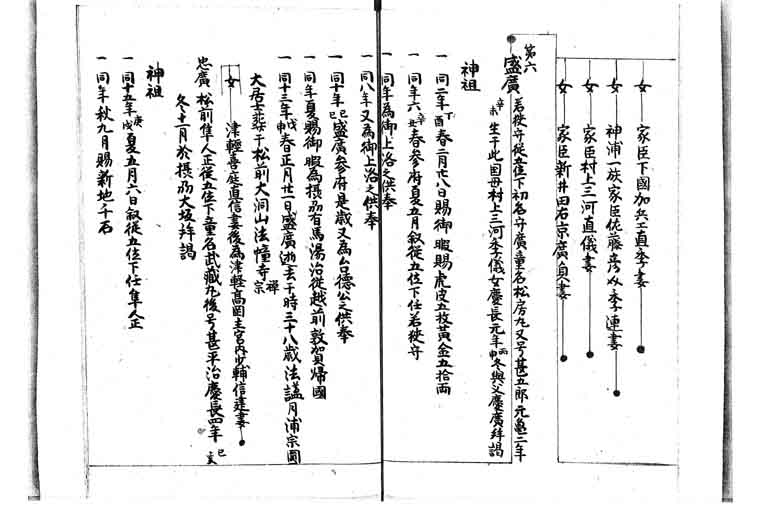 女 家臣下國加兵工直季妻
女 神浦一族家臣佐藤彦以季連妻
女 家臣村上三河直儀妻
女 家臣新井田右京廣貞妻
第六
盛廣 若狹守從五位下初名守廣童名松房丸又号甚五郎元亀二年
辛未生于此國母村上三河季儀女慶長元年丙申冬與父慶廣拜謁
神祖
一 同二年丁酉春二月廿八日賜御暇賜虎皮五枚黃金五拾両
一 同年六辛丑春参府夏五月叙從五位下任若狹守
一 同年為御上洛之供奉
一 同八年又為御上洛之供奉
一 同十年乙巳盛廣参府是歳又為台德公之供奉
一 同年夏賜御暇為摂刕有馬湯治從越前敦賀歸國
一 同十三年戊申春正月廿一日盛廣逝去于時三十八歳法謚月浦宗圓
大居士葬于松前大洞山法幢寺禅宗
女 津輕喜庭直信妻後為津軽高岡主宮内少輔信建妻
忠廣 松前隼人正從五位下童名武藏丸後号甚平治慶長四年己亥
冬十一月於摂刕大坂拜謁
神祖
一 同十五年庚戌夏五月六日叙從五位下任隼人正
一 同年秋九月賜新地千石